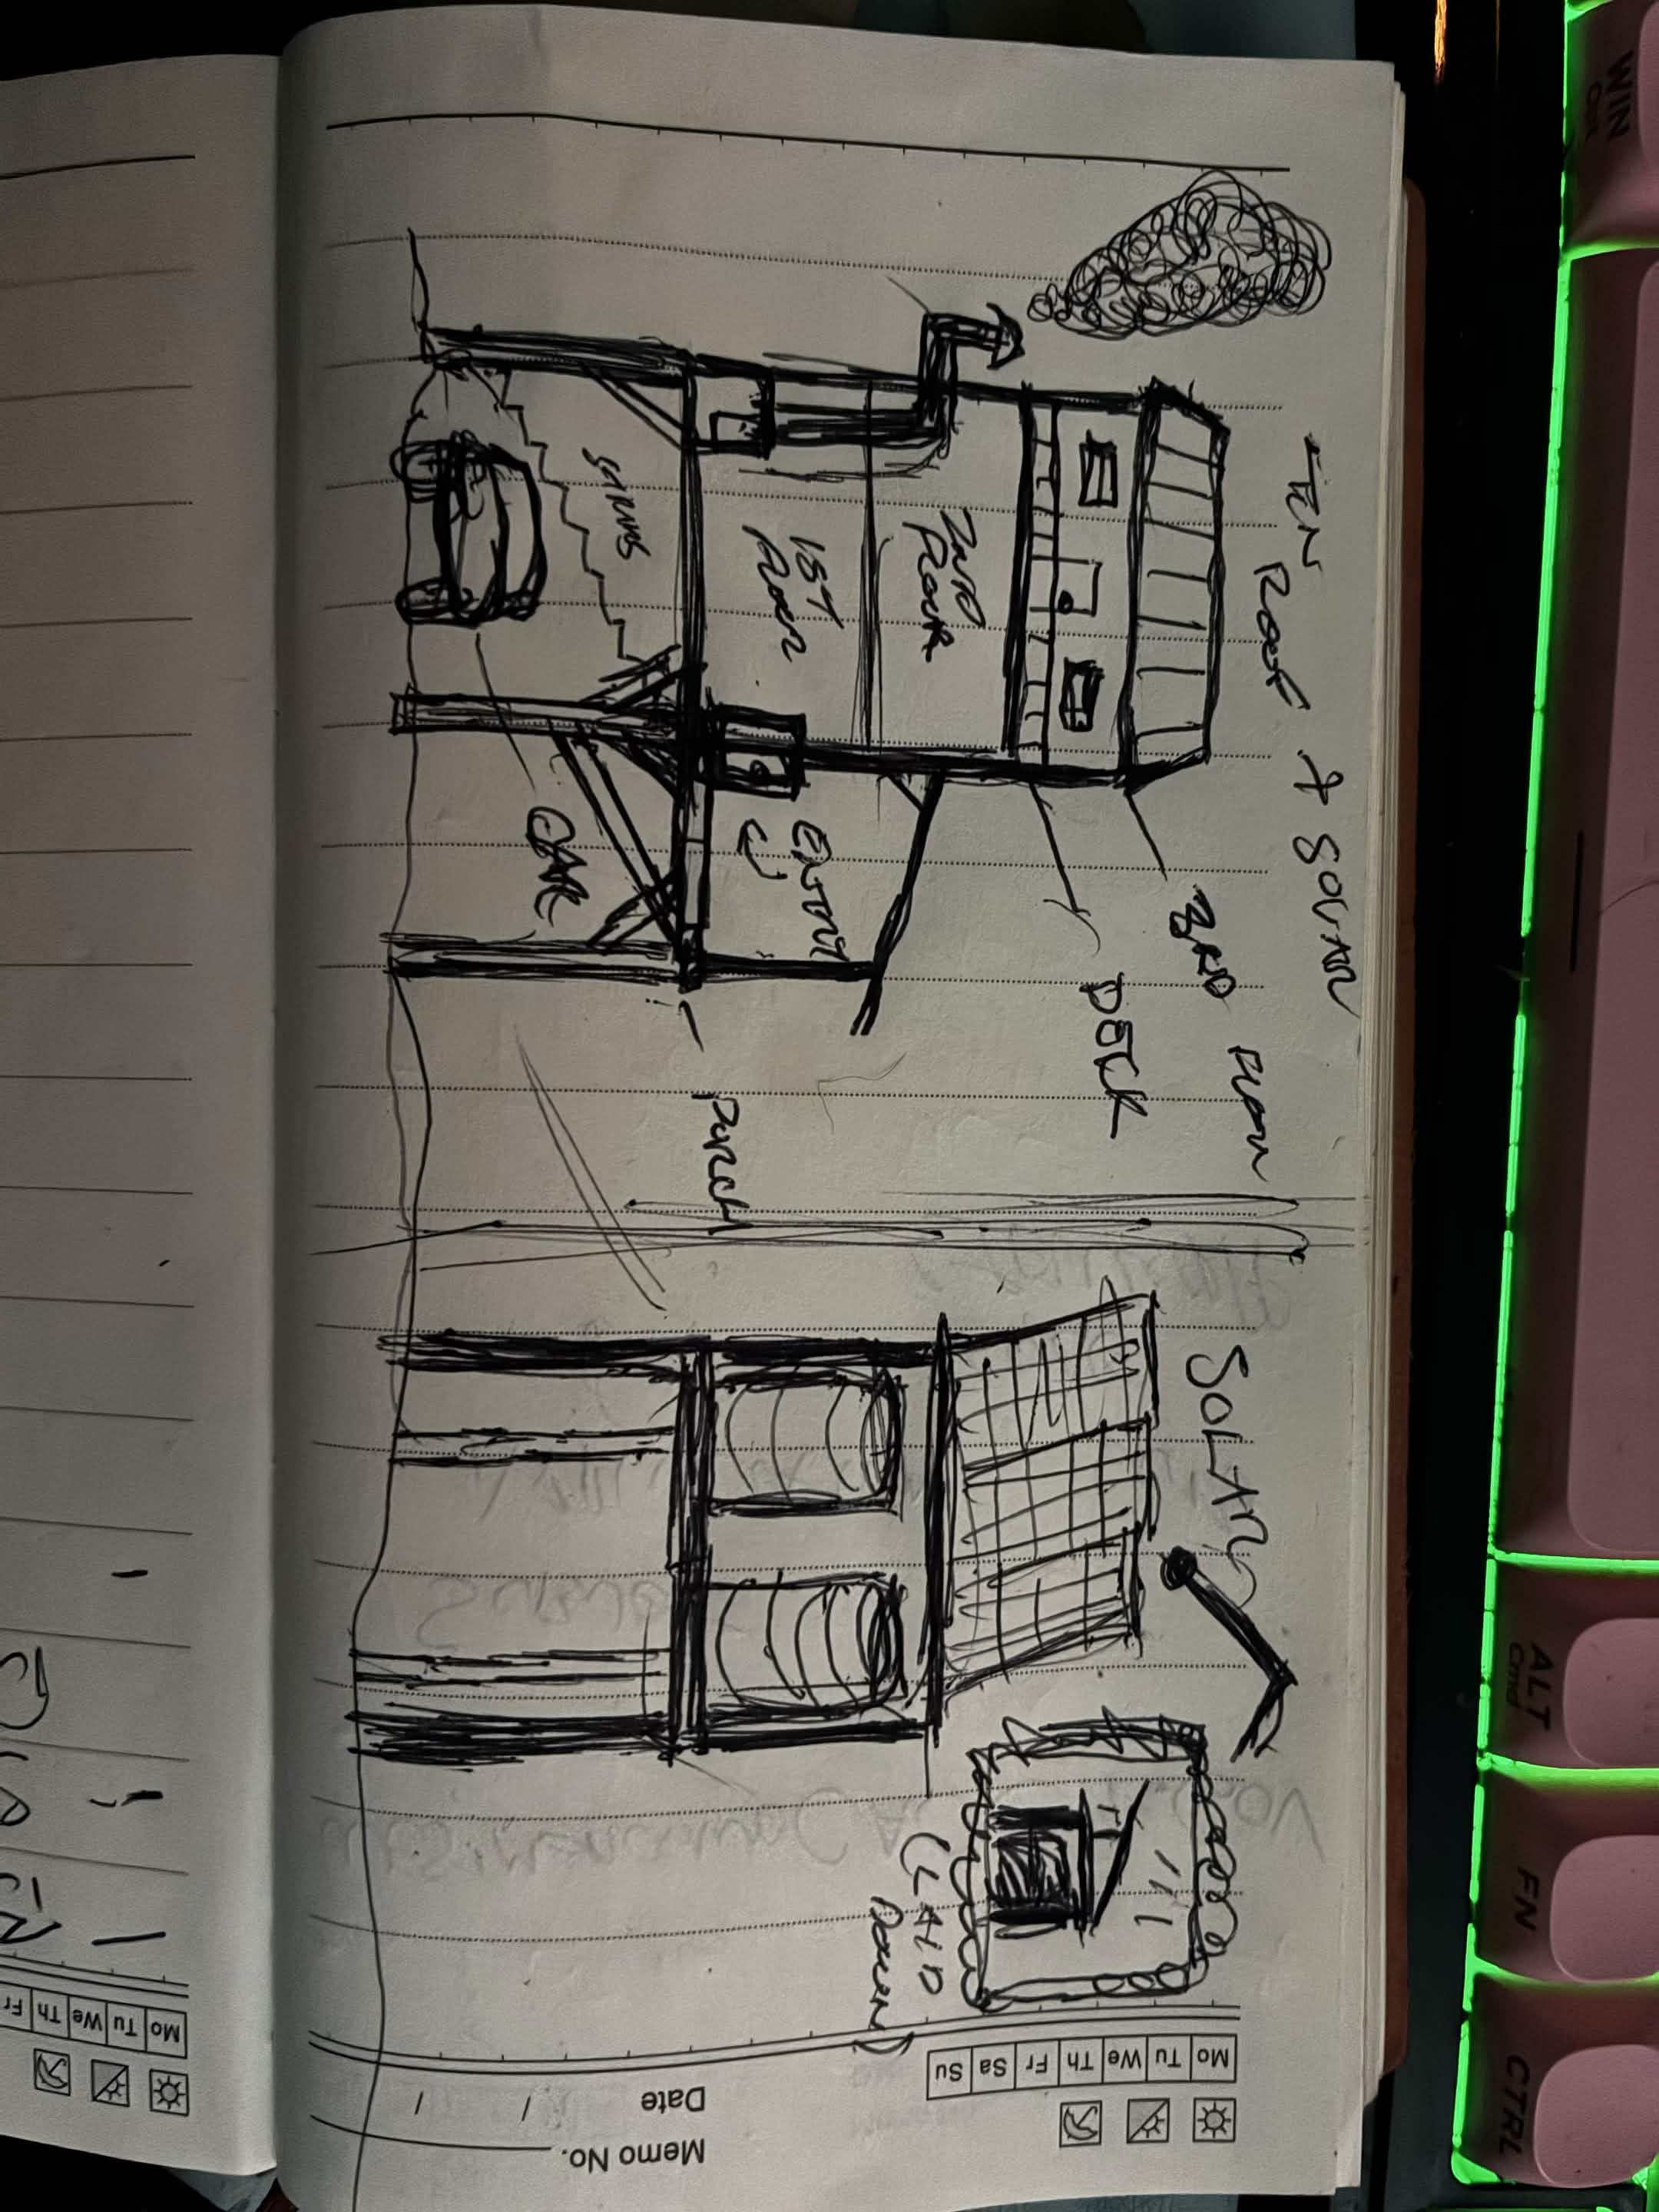 TIN ROOF & SOLAR
3RD FLOOR
DECK
2ND FLOOR
1ST FLOOR
ENTRY
STAIRS
CAR
PORCH
SOLAR
(LAID DOWN)
Mo Tu We Th Fr Sa Su
Memo No.
Date / /
Mo Tu We Th Fr
WIN
ALT
Cmd
FN
CTRL